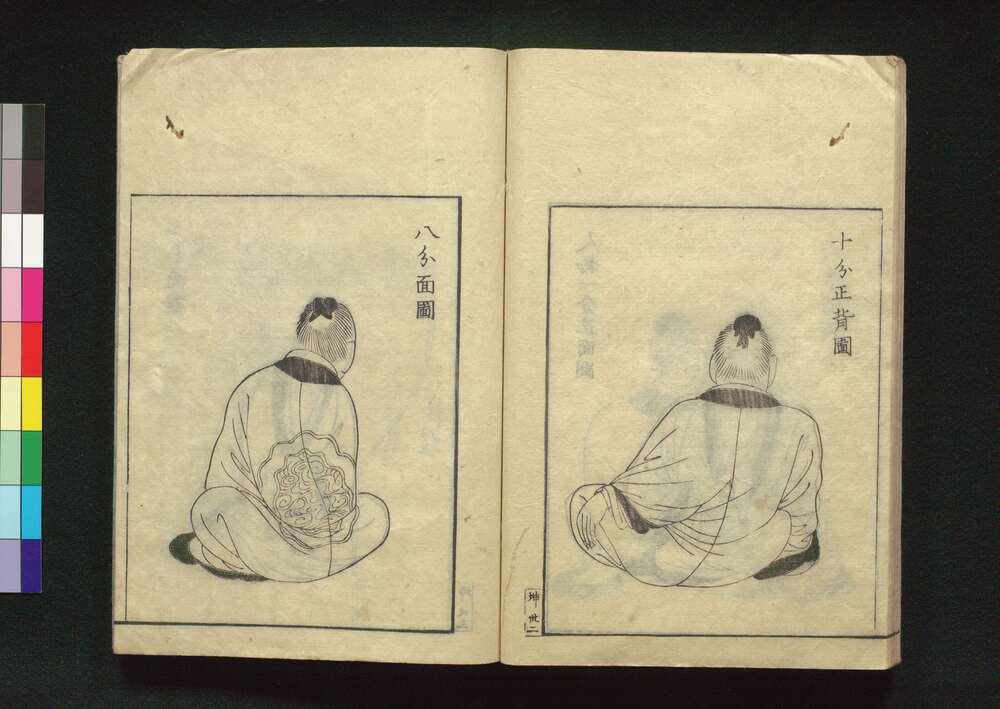 十分正背圖
坤 丗二
八分面圖